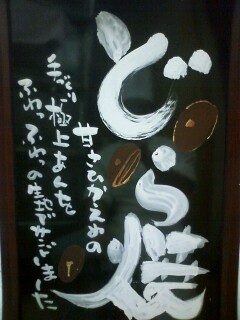 どら焼
甘さひかえめの
手づくり極上あんを
ふわっふわっの生地でつつみました